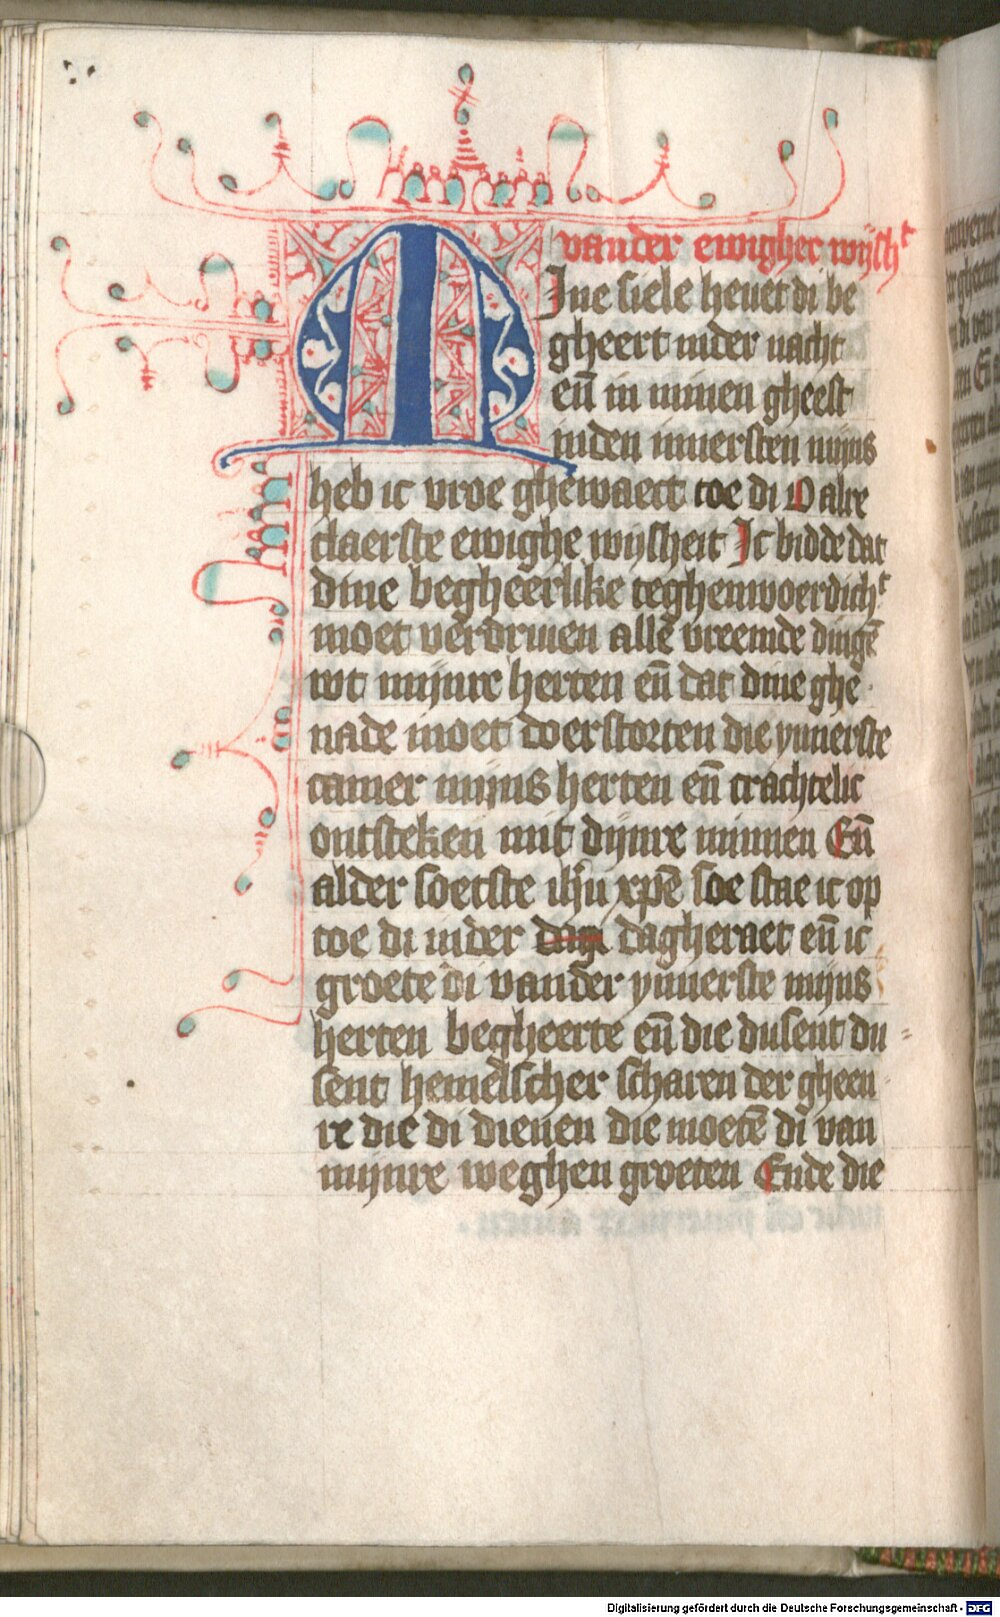 vander ewigher wijsht
MIne siele heuet di be
gheert inder nacht
en̄ in minen gheest
inden inuersten mijns
heb ic vroe ghewaect toe di O alre
claerste ewighe wijsheit Ic bidde dat
dine begheerlike teghenwoerdicht
moet verdriuen alle vreemde dingē
wt mijnre herten en̄ dat dine ghe
nade moet doerstorten die ynnerste
camer mijns herten en̄ crachtelic
ontsteken mit dijnre minnen En̄
alder soetste ihū xpē soe stae ic op
toe di inder dagheraet en̄ ic
groete di vander ynnerste mijns
herten begheerte en̄ die dusent du
sent hemelscher scharen der gheen
re die di dienen die moetē di van
mijnre weghen groeten Ende die
Digitalisierung gefördert durch die Deutsche Forschungsgemeinschaft - DFG